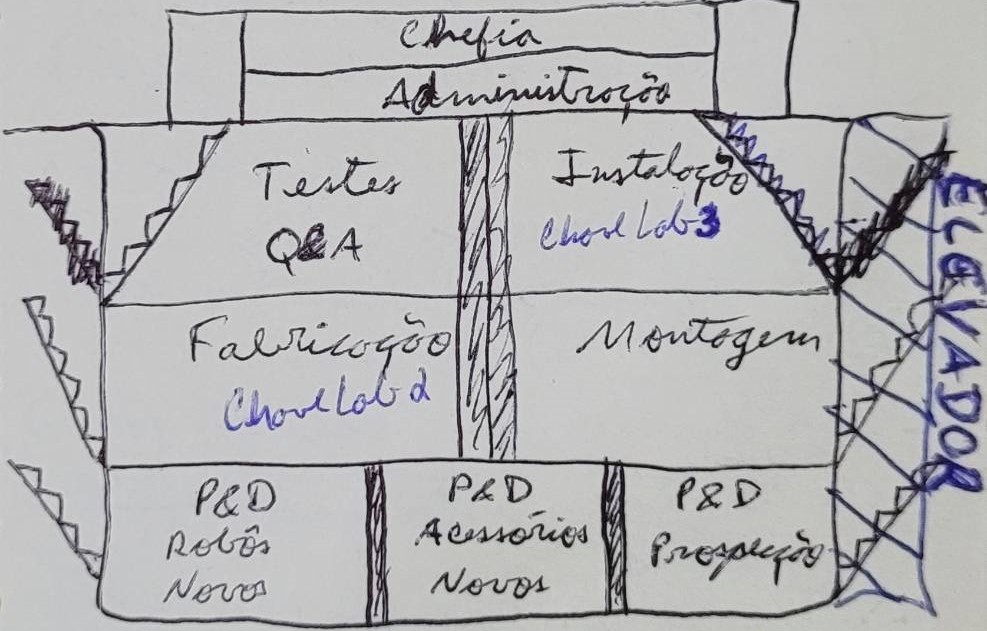 Chefia
Administração
Testes
Q&A
Instalação
Chave Lab 3
Fabricação
Chave Lab 2
Montagem
P&D
Robôs
Novos
P&D
Acessórios
Novos
P&D
Prospecção
ELEVADOR